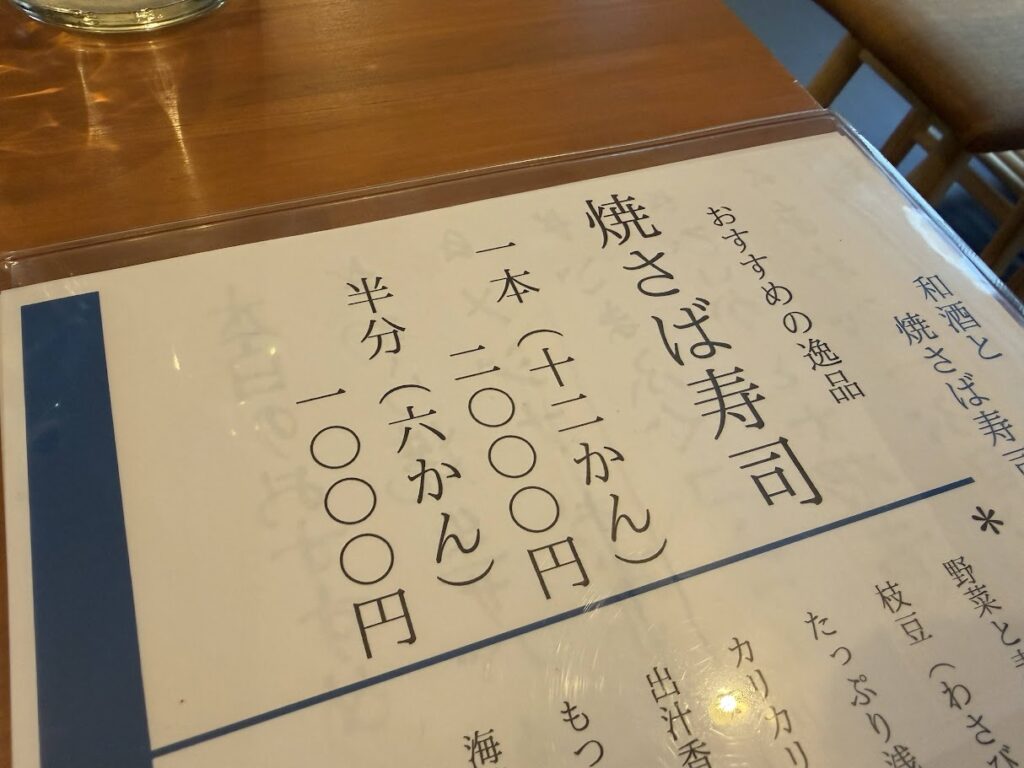 和酒と
焼さば寿司
おすすめの逸品
焼さば寿司
一本（十二かん）
二〇〇〇円
半分（六かん）
一〇〇〇円
＊
野菜と
枝豆（わさび
たっぷり浅
カリカリ
出汁香
もつ
海